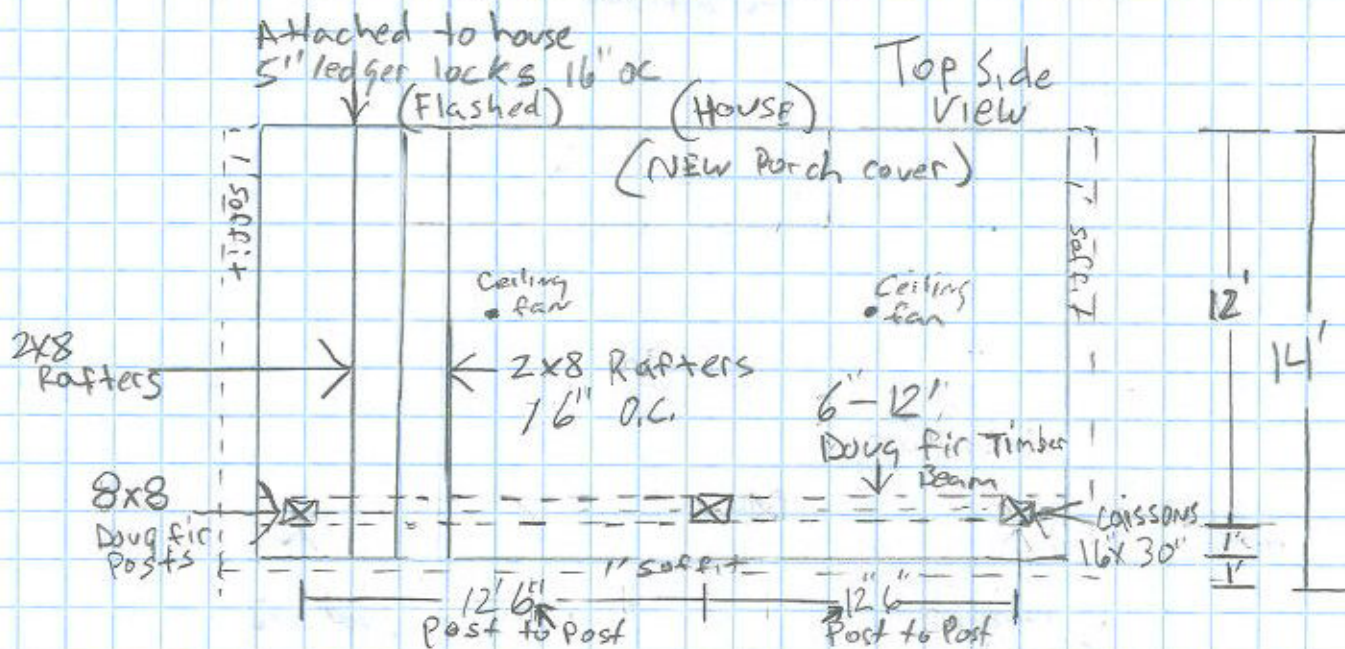 Attached to house
5" ledger locks 16" OC
(Flashed)
(HOUSE)
Top Side
View
(NEW Porch cover)
1' soffit
1' soffit
Ceiling
fan
Ceiling
fan
12'
14'
2x8
Rafters
2x8 Rafters
16" O.C.
6"-12"
Doug fir Timber
Beam
8x8
Doug fir
Posts
Caissons
16x30"
1'
1'
1' soffit
12' 6"
Post to Post
12' 6"
Post to Post